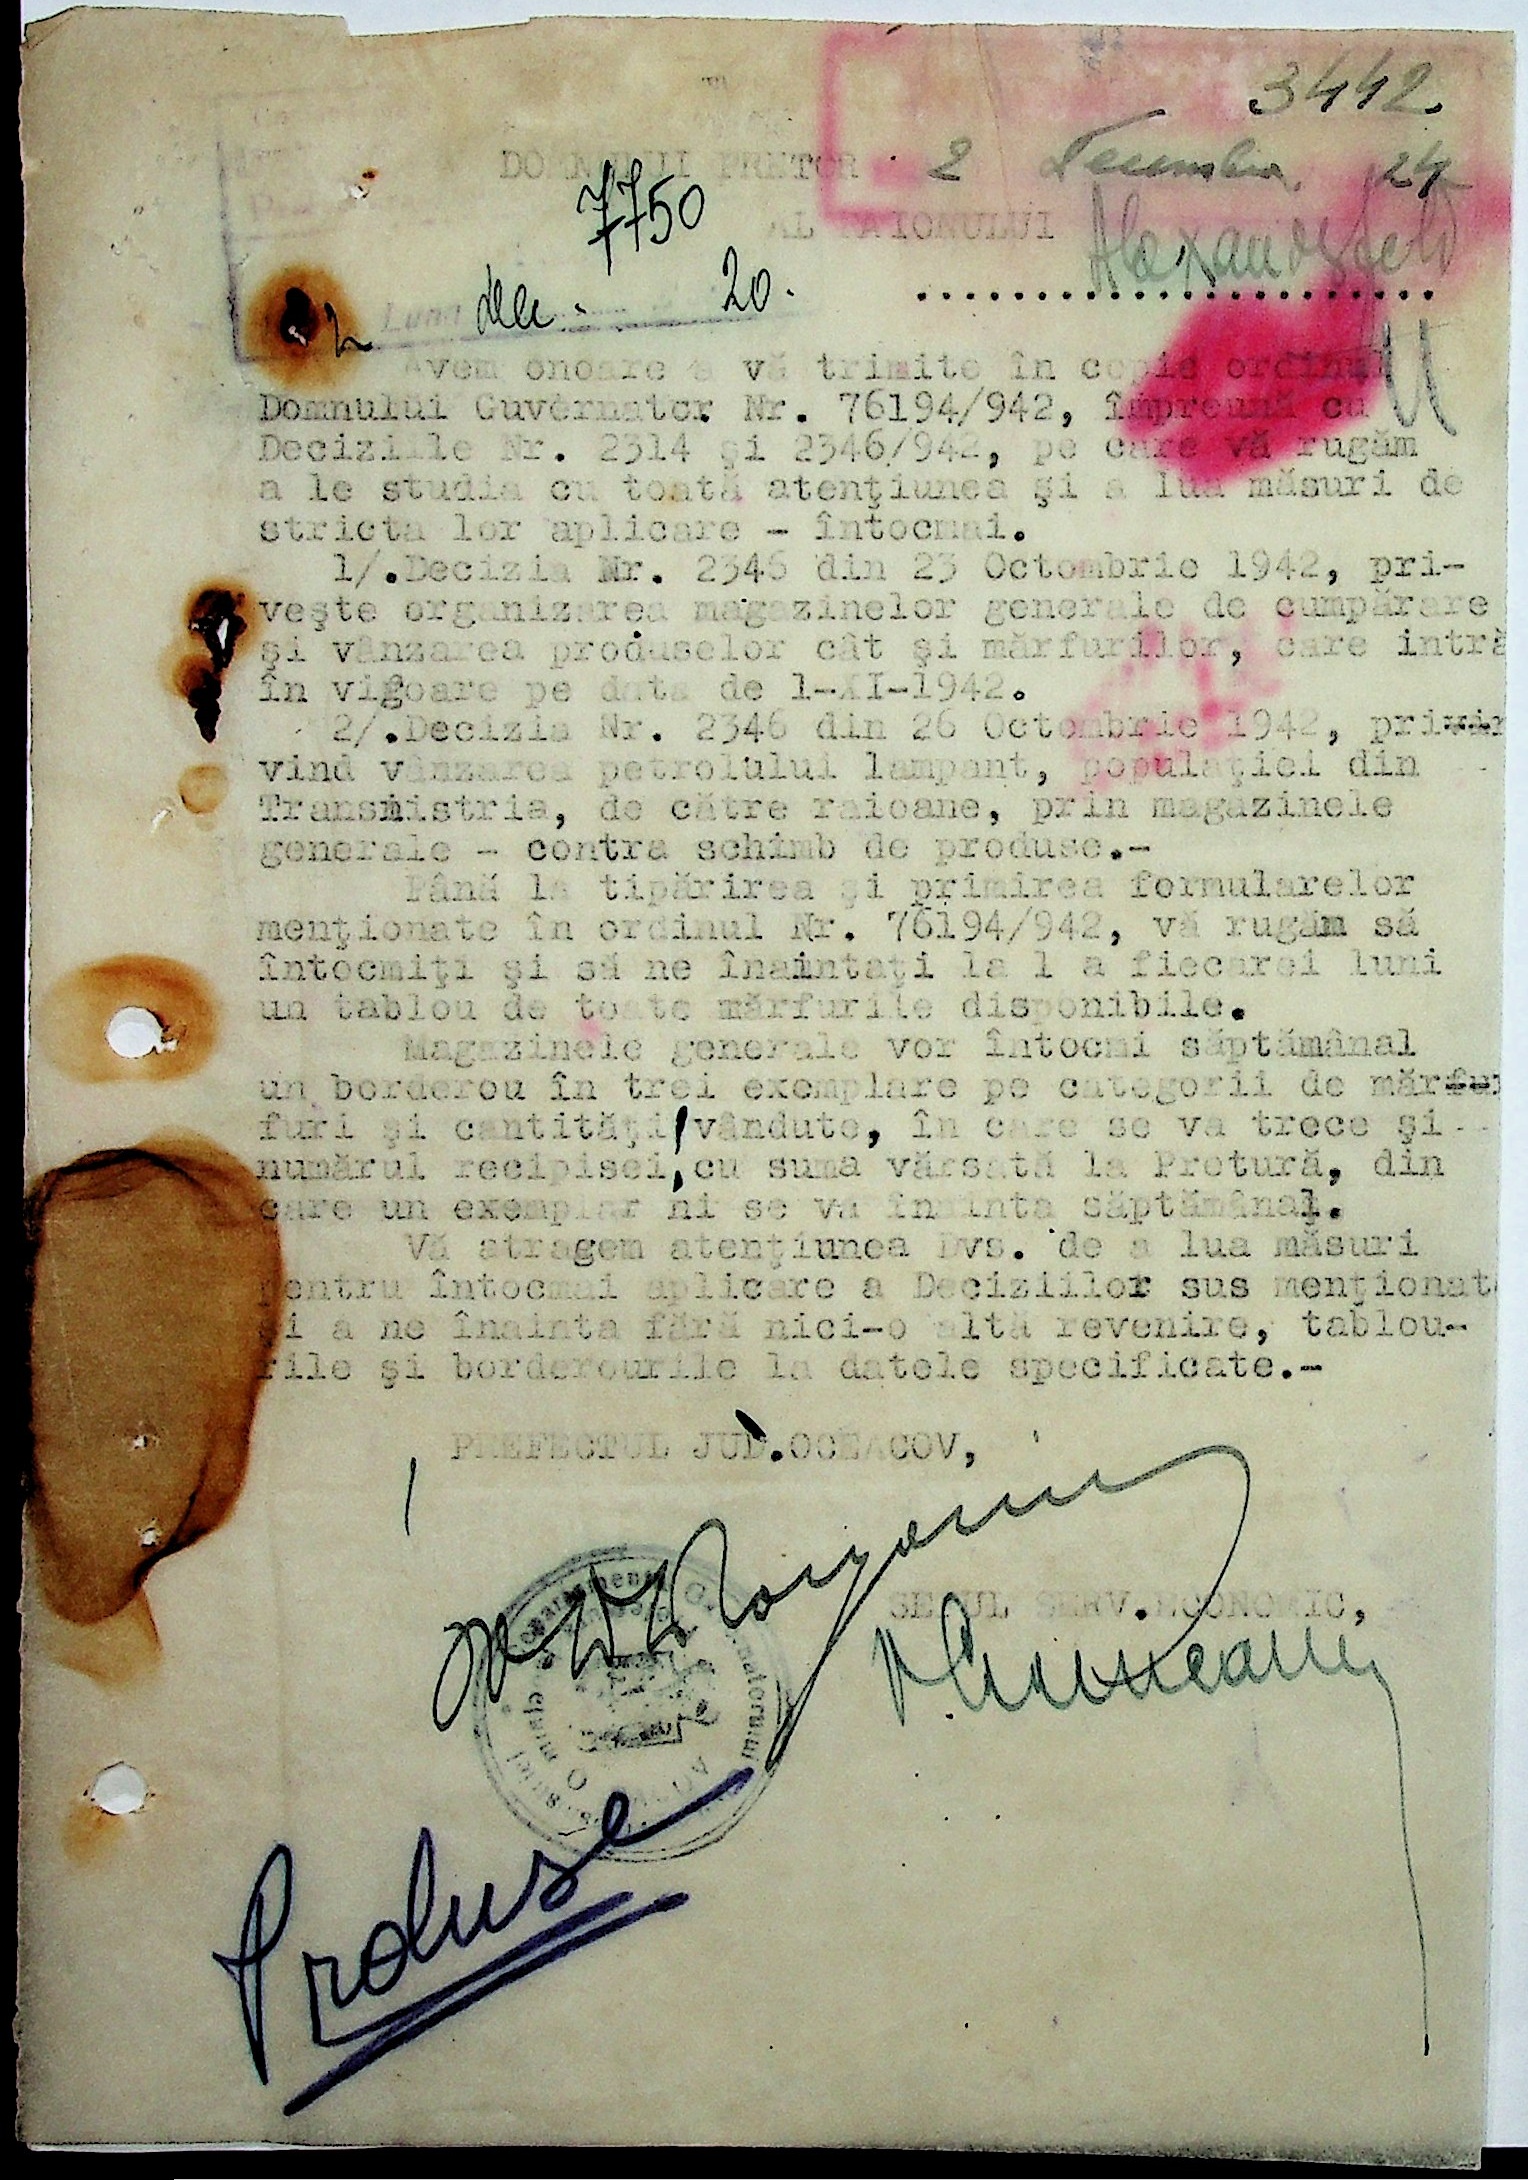 3442.
DOMNULUI PRETOR
2 Decembrie 24
7750
AL RAIONULUI Alexanderfeld
2 Luna Dec. 20.
Avem onoare a vă trimite în copie ordinul
Domnului Guvernator Nr. 76194/942, împreună cu
Deciziile Nr. 2314 şi 2346/942, pe care vă rugăm
a le studia cu toată atenţiunea şi a lua măsuri de
stricta lor aplicare - întocmai.
1/.Decizia Nr. 2346 din 23 Octombrie 1942, pri-
veşte organizarea magazinelor generale de cumpărare
şi vânzarea produselor cât şi mărfurilor, care intră
în vigoare pe data de 1-XI-1942.
2/.Decizia Nr. 2346 din 26 Octombrie 1942, pri
vind vânzarea petrolului lampant, populaţiei din
Transnistria, de către raioane, prin magazinele
generale - contra schimb de produse.-
Până la tipărirea şi primirea formularelor
menţionate în ordinul Nr. 76194/942, vă rugăm să
întocmiţi şi să ne înaintaţi la 1 a fiecarei luni
un tablou de toate mărfurile disponibile.
Magazinele generale vor întocmi săptămânal
un borderou în trei exemplare pe categorii de măr
furi şi cantităţi vândute, în care se va trece şi
numărul recipisei, cu suma vărsată la Pretură, din
care un exemplar ni se va înainta săptămânal.
Vă atragem atenţiunea Dvs. de a lua măsuri
pentru întocmai aplicare a Deciziilor sus menţionate
şi a ne înainta fără nici-o altă revenire, tablou-
rile şi borderourile la datele specificate.-
PREFECTUL JUD.OCEACOV,
SEFUL SERV.ECONOMIC,
Produse